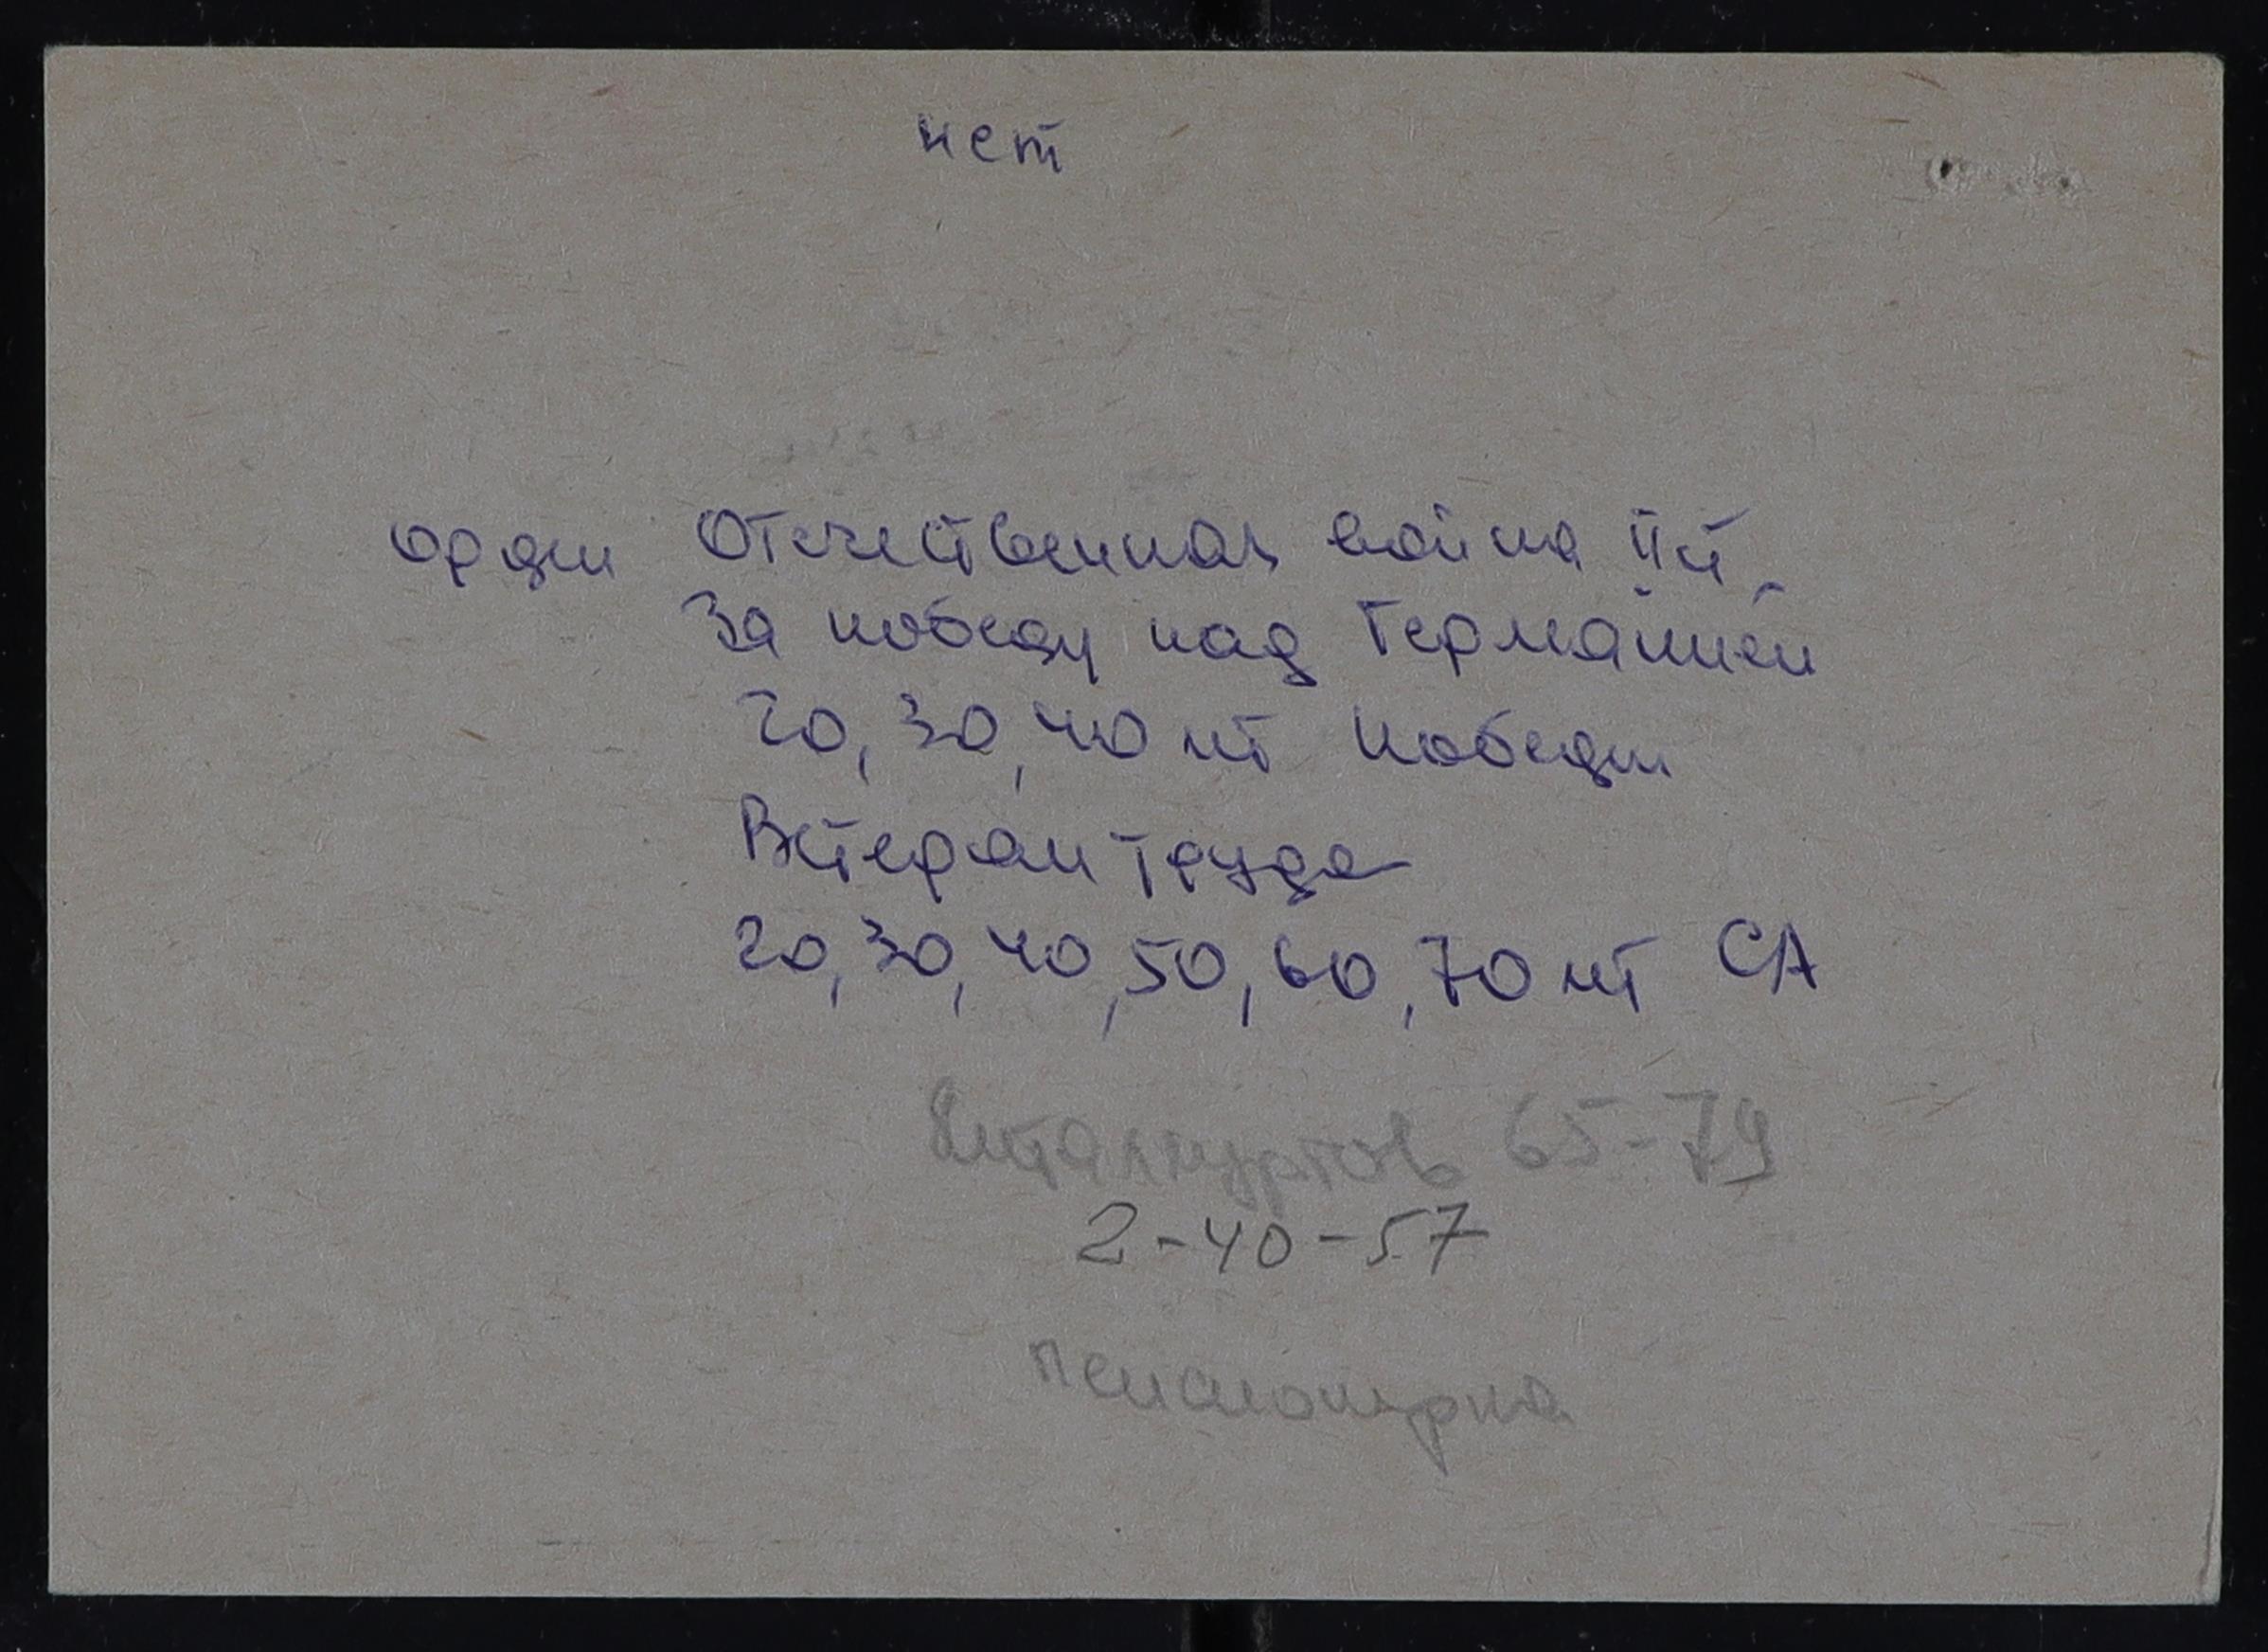 нет
орден Отечественная война II ст.
За победу над Германией
20, 30, 40 лет Победы
Ветеран труда
20, 30, 40, 50, 60, 70 лет СА
Металлургов 65-79
2-40-57
пенсионерка